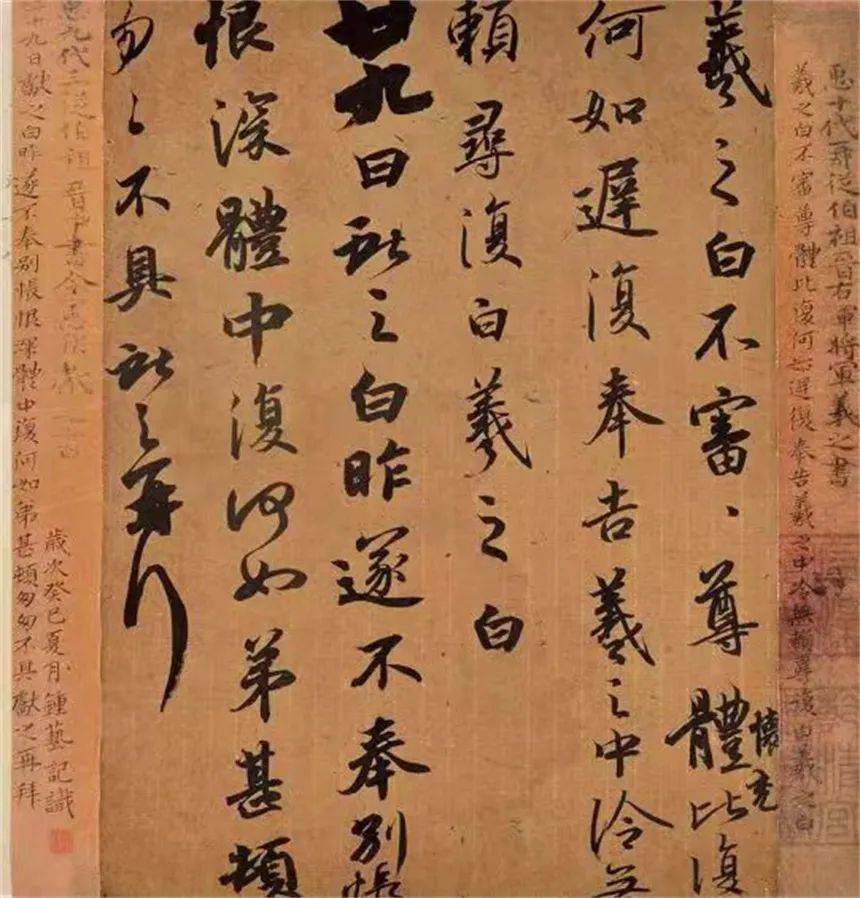 𢘑十代再從伯祖晉右軍將軍羲之書
羲之白不審尊體比復何如遲復奉告羲之中冷無賴尋復白羲之白
羲之白不審、尊體比復
懷充
何如遲復奉告羲之中冷無
賴尋復白羲之白
廿九日獻之白昨遂不奉別悵
恨深體中復何如弟甚頓
勿〻不具獻之再拜
九代三從伯祖晉中書令
歲次癸巳夏月鍾藝記識
廿九日獻之白昨遂不奉別悵恨深體中復何如弟甚頓匆匆不具獻之再拜